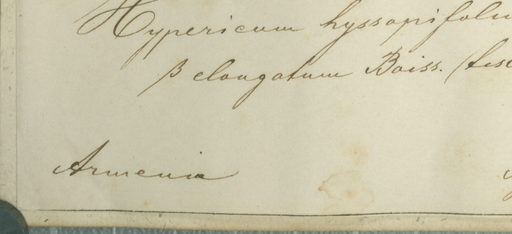 Hypericum hyssopifoliu
β elongatum Boiss. (
Armenia